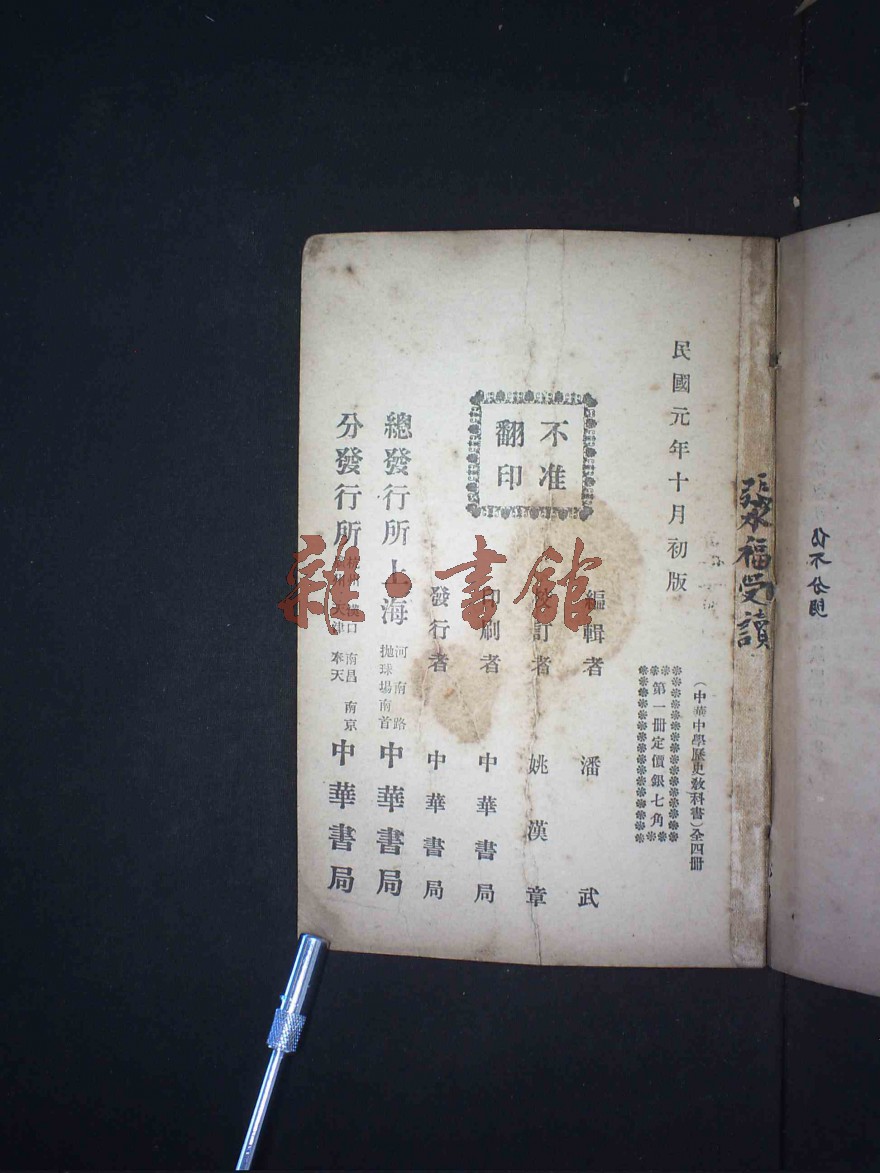 公不分明
張永福受讀
民國元年十月初版
(中華中學歷史教科書)全四冊
第一冊定價銀七角
不准
翻印
編輯者 潘武
校訂者 姚漢章
印刷者 中華書局
發行者 中華書局
總發行所 上海 河南路 拋球場南首 中華書局
分發行所 漢口 天津 南昌 奉天 南京 中華書局
雜·書館